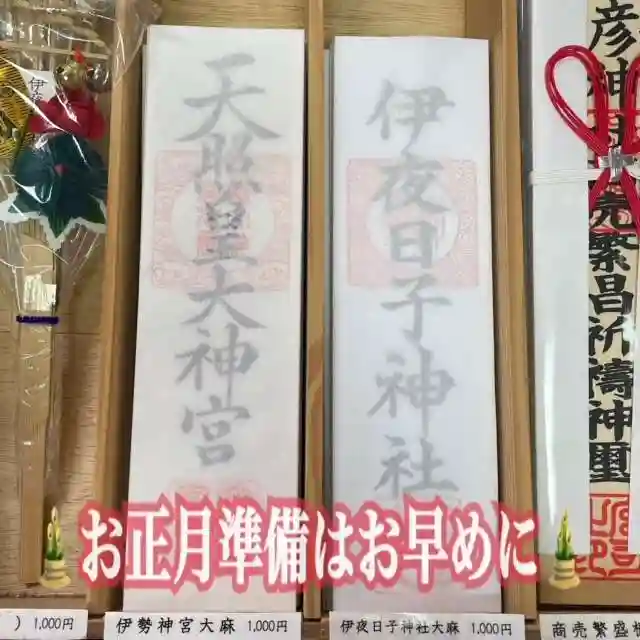 天照皇大神宮
伊夜日子神社
彦神
商売繁昌祈禱神璽
お正月準備はお早めに
) 1,000円
伊勢神宮大麻 1,000円
伊夜日子神社大麻 1,000円
商売繁盛